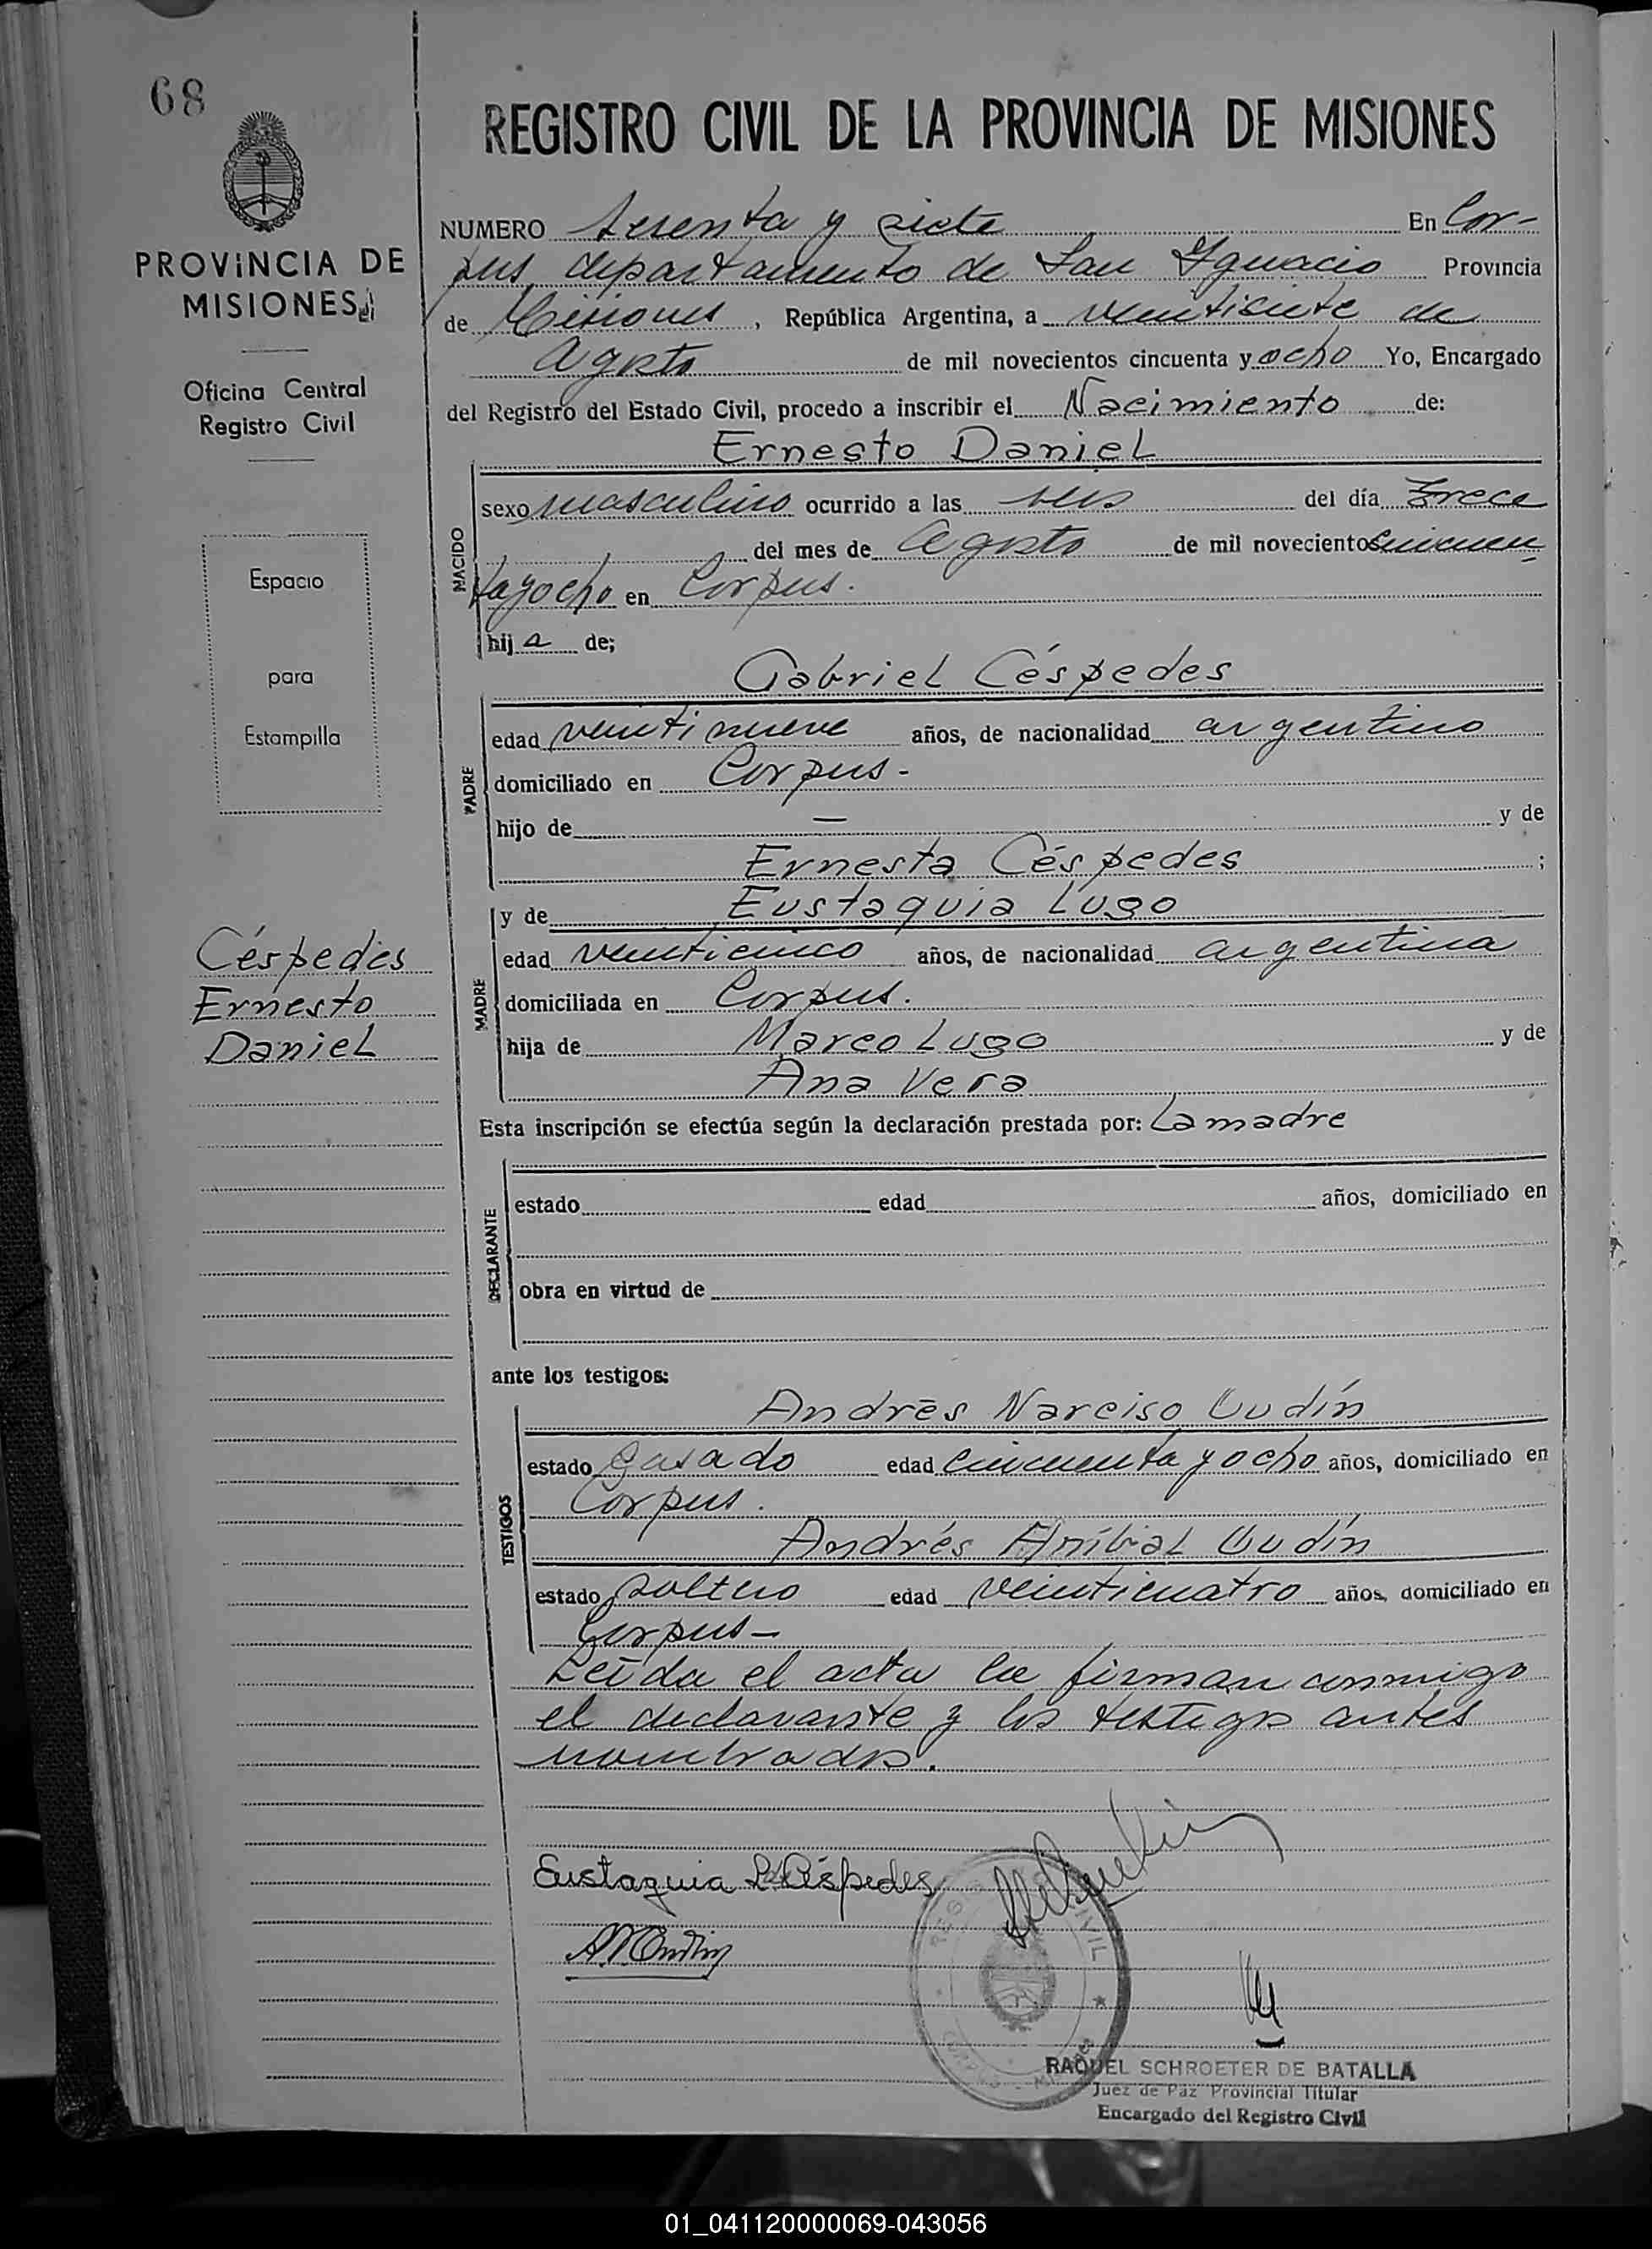 68
REGISTRO CIVIL DE LA PROVINCIA DE MISIONES
PROVINCIA DE
MISIONES
Oficina Central
Registro Civil
Espacio
para
Estampilla
Céspedes
Ernesto
Daniel
NUMERO sesenta y siete En Cor-
pus departamento de San Ygnacio Provincia
de Misiones, República Argentina, a veintisiete de
Agosto de mil novecientos cincuenta y ocho Yo, Encargado
del Registro del Estado Civil, procedo a inscribir el Nacimiento de:
Ernesto Daniel
NACIDO
sexo masculino ocurrido a las seis del día trece
del mes de Agosto de mil novecientos cincuen
tayocho en Corpus.
hij a de;
Gabriel Céspedes
PADRE
edad veintinueve años, de nacionalidad argentino
domiciliado en Corpus-
hijo de — y de
Ernesta Céspedes ;
y de Eustaquia Lugo
MADRE
edad veinticinco años, de nacionalidad argentina
domiciliada en Corpus.
hija de Marco Lugo y de
Ana Vera
Esta inscripción se efectúa según la declaración prestada por: La madre
DECLARANTE
estado edad años, domiciliado en
obra en virtud de
ante los testigos:
TESTIGOS
Andrés Narciso Oudín
estado Casado edad cincuenta y ocho años, domiciliado en
Corpus.
Andrés Aníbal Oudín
estado soltero edad veinticuatro años, domiciliado en
Corpus-
Leída el acta la firman conmigo
el declarante y los testigos antes
nombrados.
Eustaquia L. Céspedes
ANOudin
CIVIL
RAQUEL SCHROETER DE BATALLA
Juez de Paz Provincial Titular
Encargado del Registro Civil
01_041120000069-043056